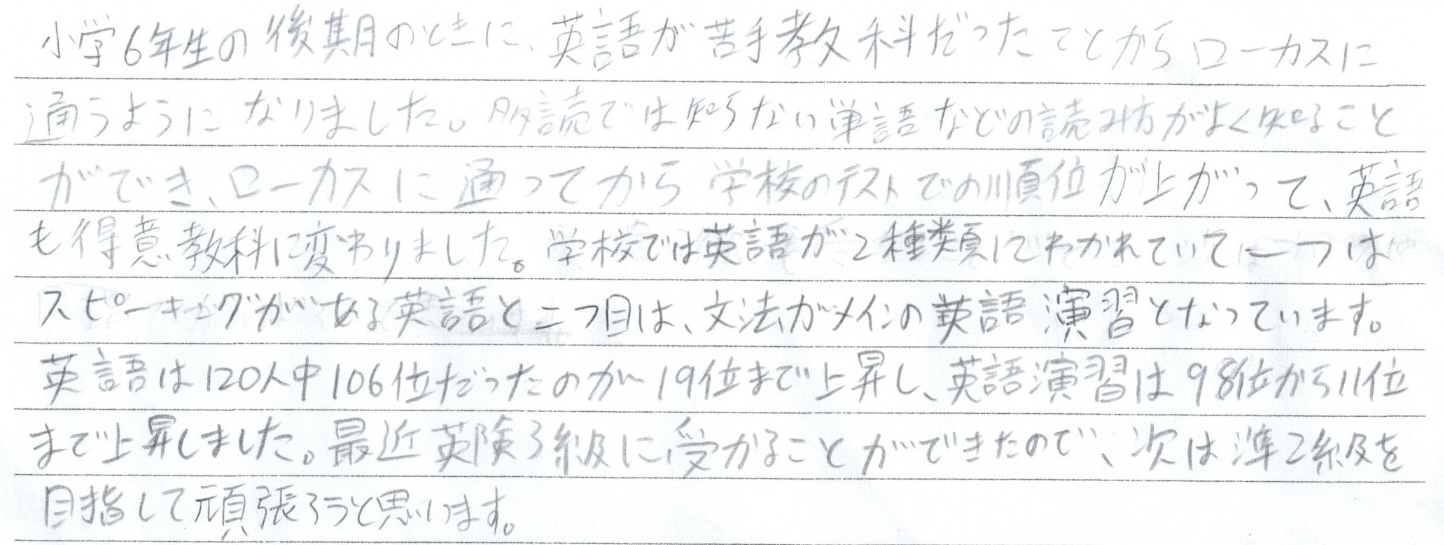 小学6年生の後期のときに、英語が苦手教科だったことからローカスに
通うようになりました。多読では知らない単語などの読み方がよく知ること
ができ、ローカスに通ってから学校のテストでの順位が上がって、英語
も得意教科に変わりました。学校では英語が2種類にわかれていて一つは
スピーキングがある英語と二つ目は、文法がメインの英語演習となっています。
英語は120人中106位だったのが19位まで上昇し、英語演習は98位から11位
まで上昇しました。最近英険3級に受かることができたので、次は準2級を
目指して頑張ろうと思います。